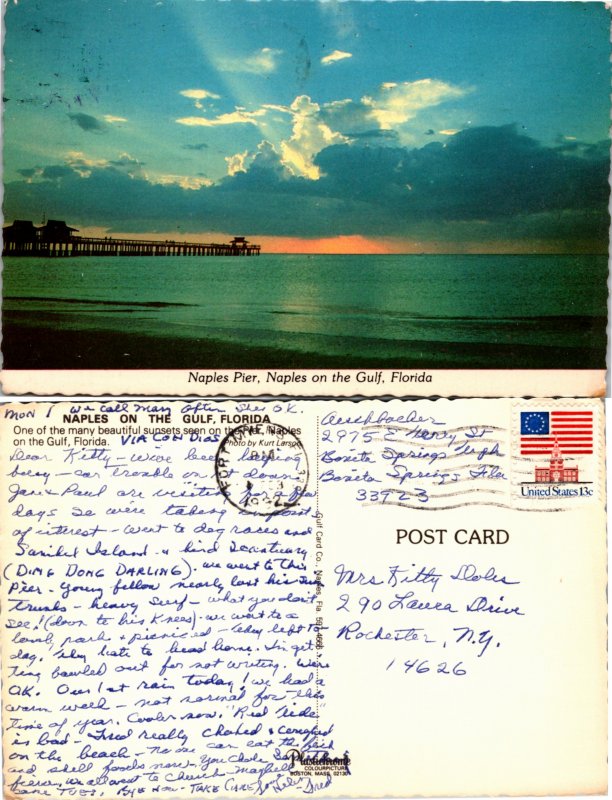 Naples Pier, Naples on the Gulf, Florida
MON we call Mary after she's OK.
NAPLES ON THE GULF, FLORIDA
One of the many beautiful sunsets seen on the Pier, Naples
on the Gulf, Florida. VIA CON DIOS Photo by Kurt Larson
Dear Kitty - We've been keeping
busy - car trouble on down
Jane & Paul are visiting for a few
days so were taking in point
of interest - went to dog races and
Sanibel Island - a bird Sanctuary
(DING DONG DARLING). we went to This
Pier - Young fellow nearly lost his swim
trunks - heavy surf - what you don't
see! (down to his knees) - we went to a
park & picniced - They left To
day. They hate to head home. I'm get
ting bawled out for not writing. We're
OK. Our 1st rain today! we had a
warm week - not normal for this
time of year. Cooler now. "Red Tide"
is bad - Fred really choked &
on the beach - no one can eat the fish
and shell foods now. You
we allowed to Church -
same TUES. BYE NOW - TAKE CARE Helen - Fred
FORT MYERS
PM
Gulf Card Co., Naples, Fla.
Plastichrome
COLOURPICTURE
BOSTON, MASS. 02130
2975 E Henry St
Bonita Springs
Bonita Springs Fla
33923
United States 13c
POST CARD
Mrs Kitty
290 Laura Drive
Rochester, N.y.
14626